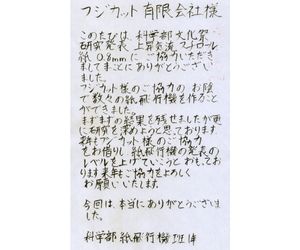 フジカット有限会社様
このたびは、科学部の文化祭
研究発表 上昇気流 スチロール
紙 0.8mmに ご協力いただき
ましてまことにありがとうござい
ました。
フジカット様のご協力の お陰
で数々の紙飛行機を作ることが
できました。
まずまずの結果を残せましたが更
に研究を深めようと思っております。
来年もフジカット様のご協力
をお借りし 紙飛行機の発表の
レベルを上げていこうと おもっており
ます来年もご協力をよろしく
お願いいたします。
今回は、本当にありがとうございま
した。
科学部 紙飛行機班